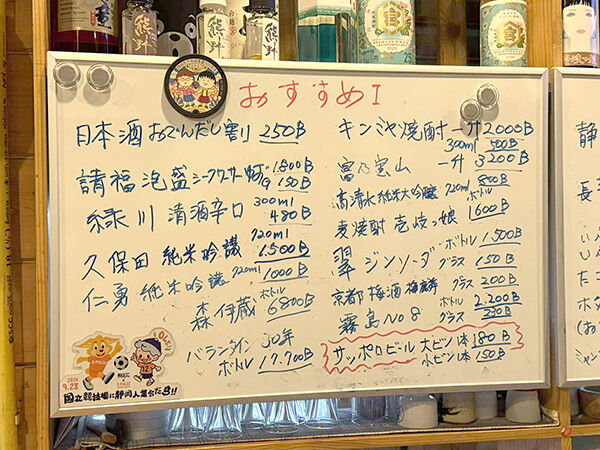 おすすめI
日本酒おでんだし割り 250B
請福泡盛シークワーサー 1.800B
G 150B
緑川 清酒辛口 300ml 480B
久保田 純米吟醸 720ml 1.500B
仁勇 純米吟醸 720ml 1000B
森伊蔵 ボトル 6800B
バランタイン 30年 ボトル 17.700B
キンミヤ焼酎 一升 2000B
300ml 500B
富乃宝山 一升 3200B
高清水純米大吟醸 720ml 800B
麦焼酎 壱岐っ娘 ボトル 1600B
翠 ジンソーダ ボトル 1.500B
グラス 150B
京都梅酒 グラス 200B
霧島 No8 ボトル 2.200B
グラス 230B
サッポロビール 大ビン1本 180B
小ビン1本 150B
2024
9.28
国立競技場に静岡人集合だ!!
静
長